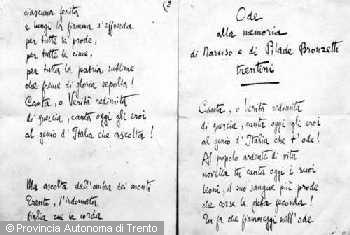 ciascuna ferita
e lungi la fiamma s'effonda
per tutte le prode,
per tutte le cime,
per tutta la patria sublime
che freme di gloria sepolta!
Canta, o Verità redimita
di guercia, canta oggi gli eroi
al genio d'Italia che ascolta!
Ma ascolta dall'ombra dei monti
Trento, l'
(2
Ode
alla memoria
di Narciso e di Pilade Bronzetti
trentini
Canta, o Verità redimita
di guercia, canta oggi gli eroi
al genio d'Italia che t'ode!
Al popolo ardente di vita
novella tu canta oggi i suoi
leoni, il suo sangue più prode
che corse la dolce feconda!
Un fa che fiammeggi nell'ode
© Provincia Autonoma di Trento